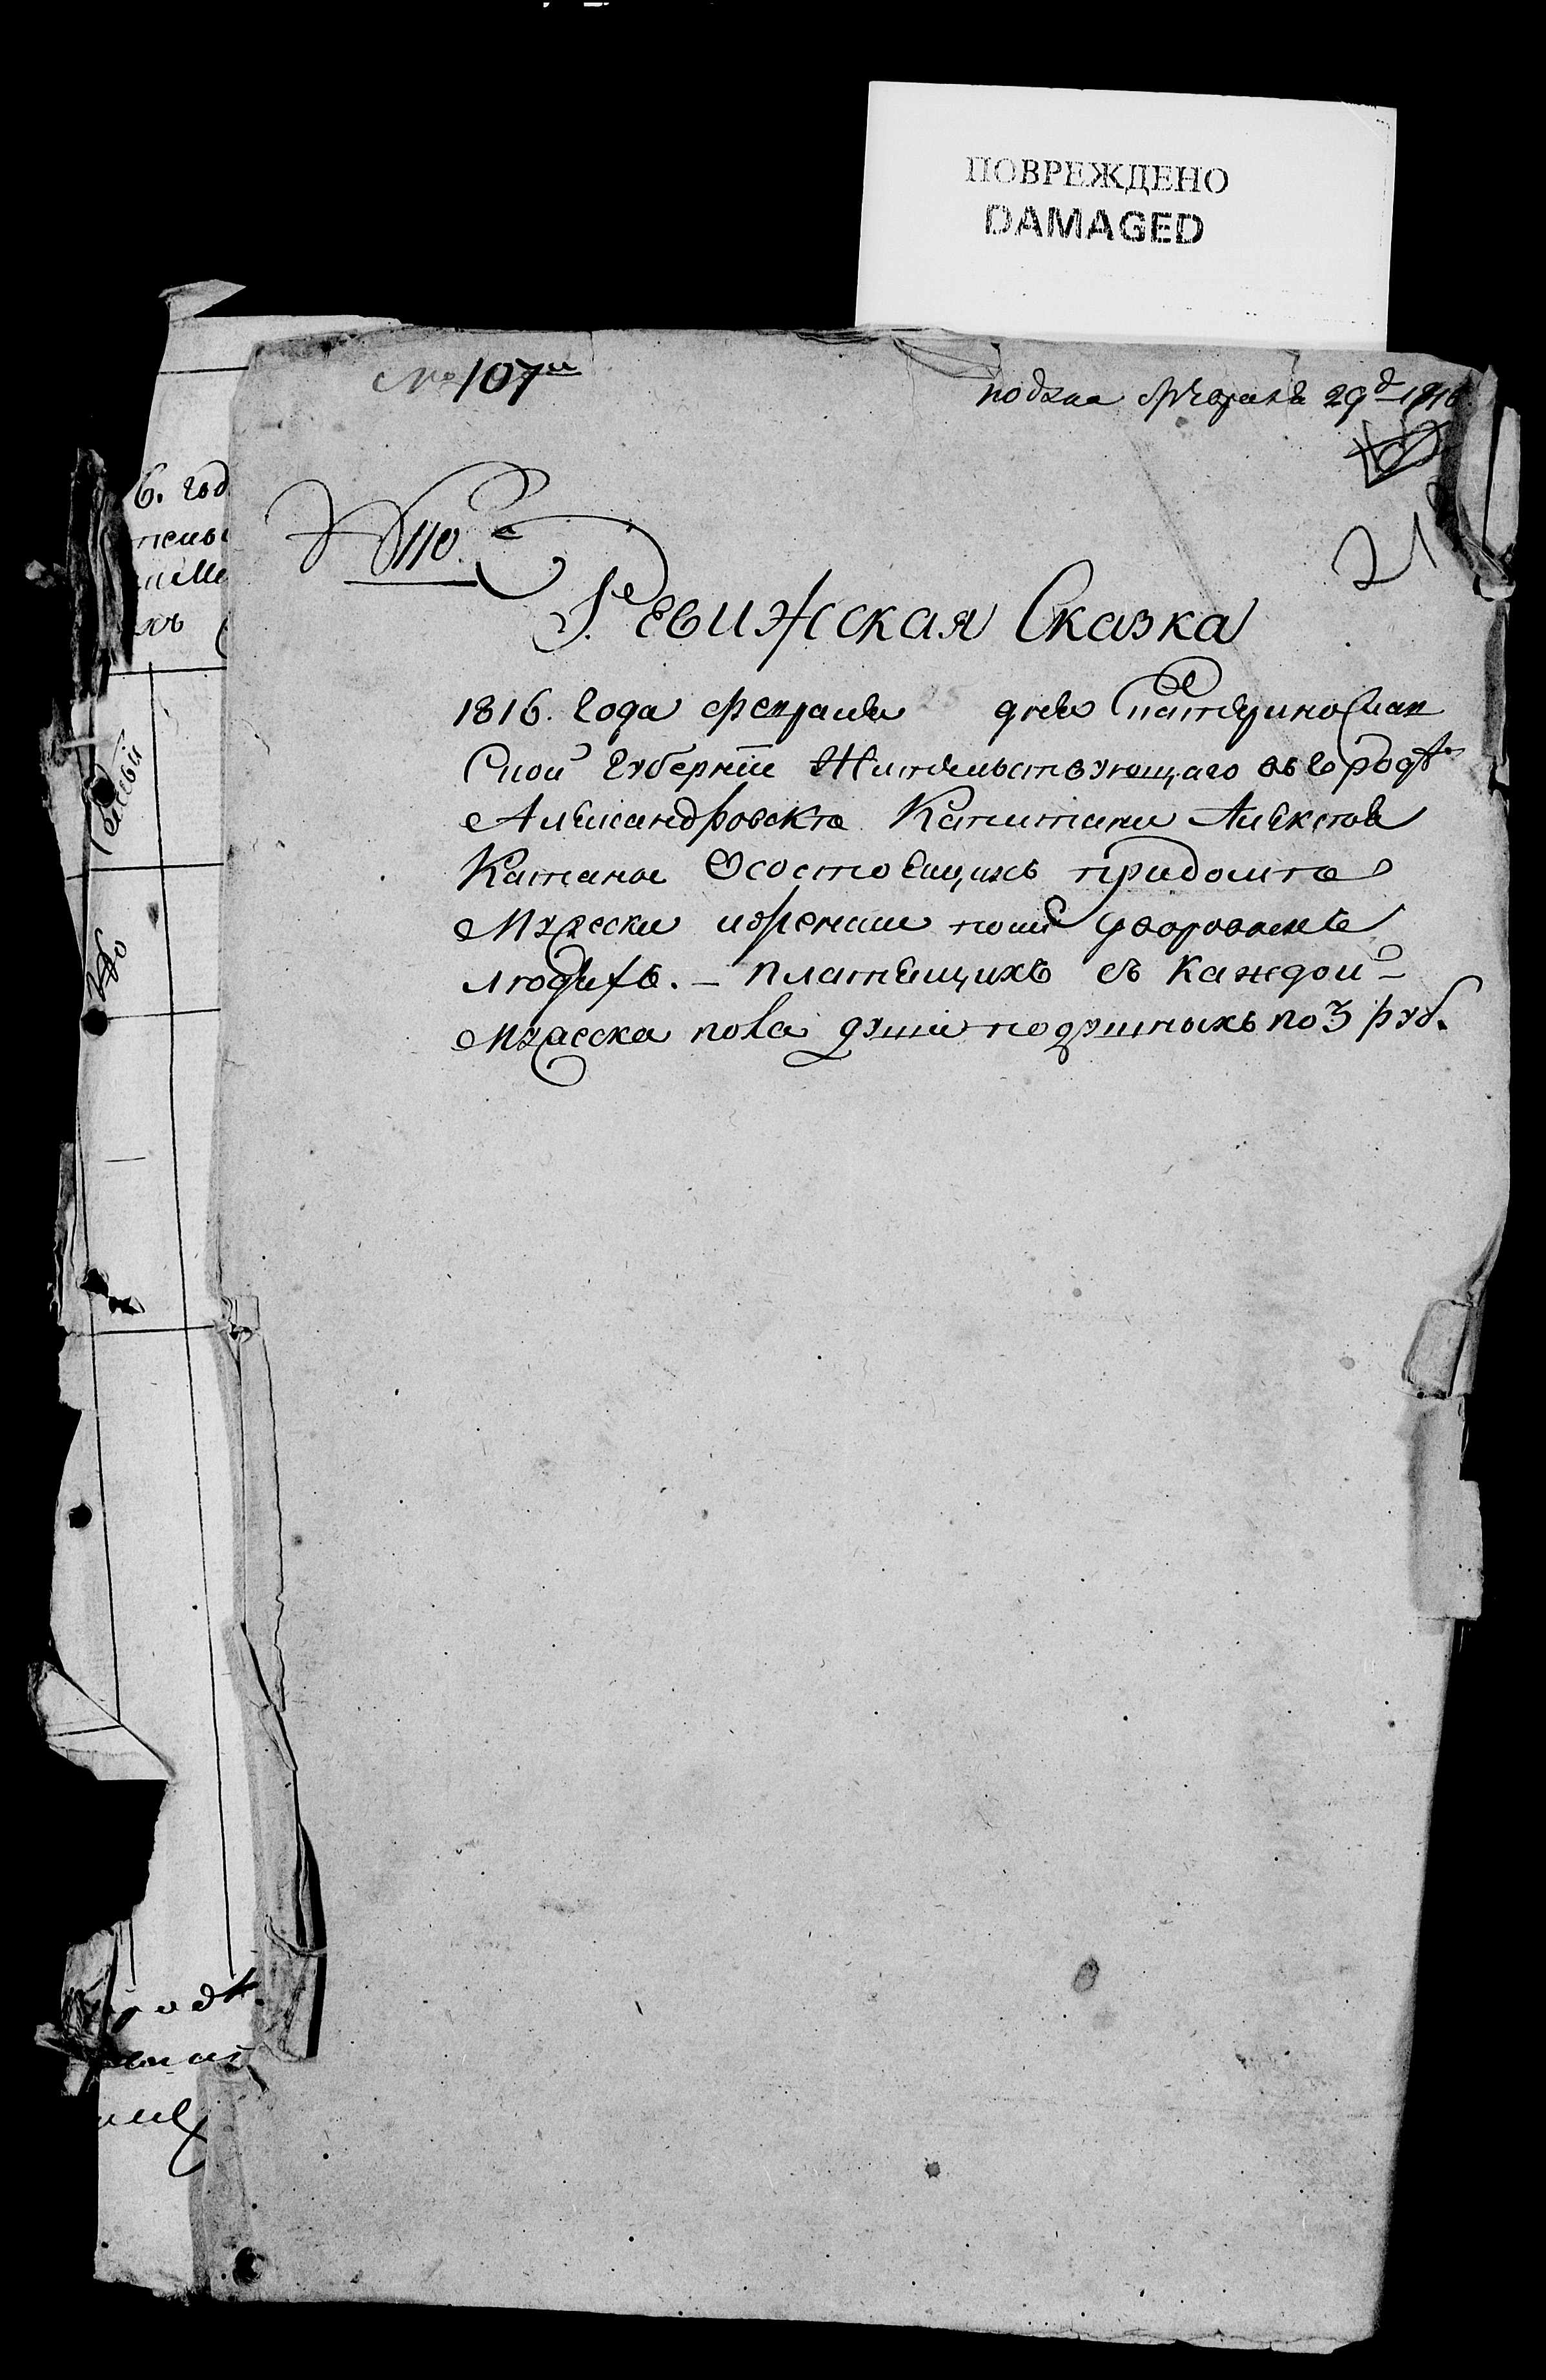 ПОВРЕЖДЕНО
DAMAGED
№ 107й
подана февраля 29д 1816
№ 110
21
Ревижская Сказка
1816. Года февраля дня Екатеринослав
Скои Губернии Жительствующаго въ городѣ
Александровскѣ Капитана Алексея
Катаны Осостоящихъ придомѣ
Мужеска иженска пола дворовыхъ
людехъ. – платящихъ съ каждои
Мужеска пола души подушныхъ по 3 руб.
6. год